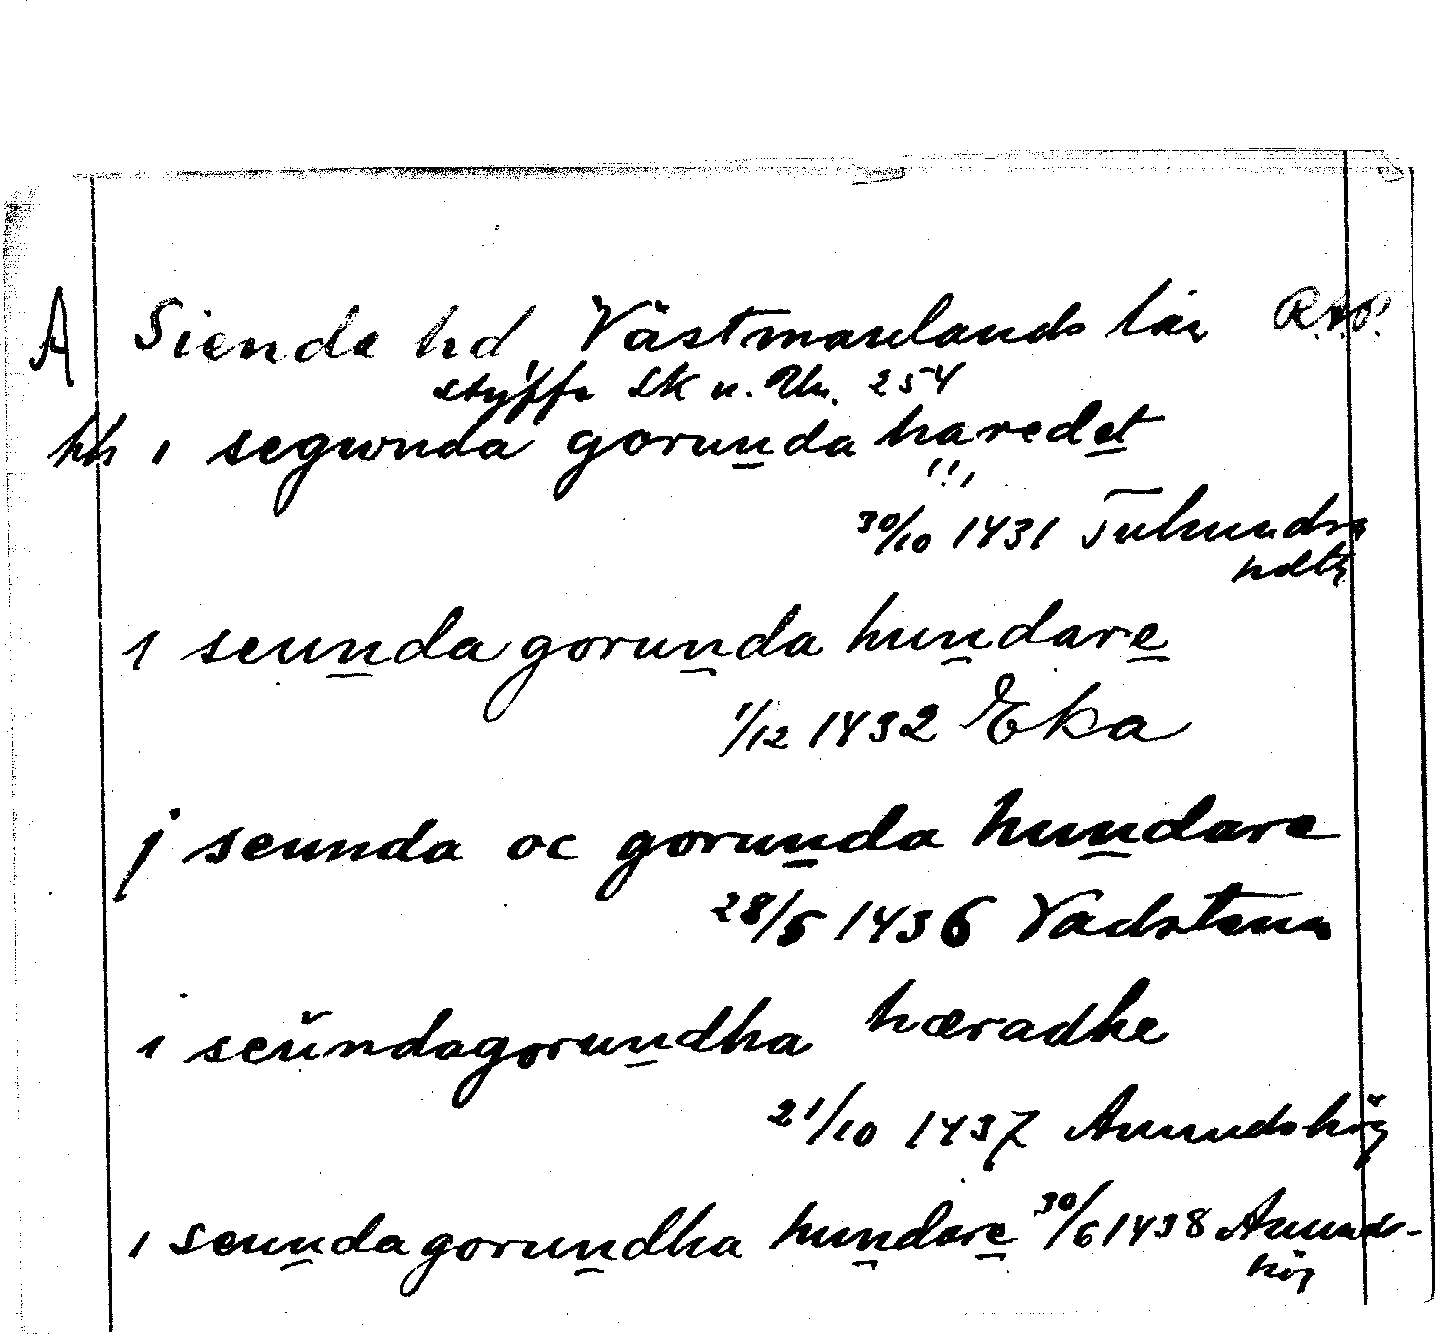 A Siende hd, Västmanlands län R.A.P.
Styffe SK u. Un. 254
hh i segwnda gorunda haredet
!!!
30/10 1431 Tuhundra
hdtg
i seunda gorunda hundare
1/12 1432 Eka
j seunda oc gorunda hundare
28/5 1436 Vadstena
i seŭndagorundha hæradhe
21/10 1437 Anundshög
i seundagorundha hundare 30/6 1438 Anunds-
hög